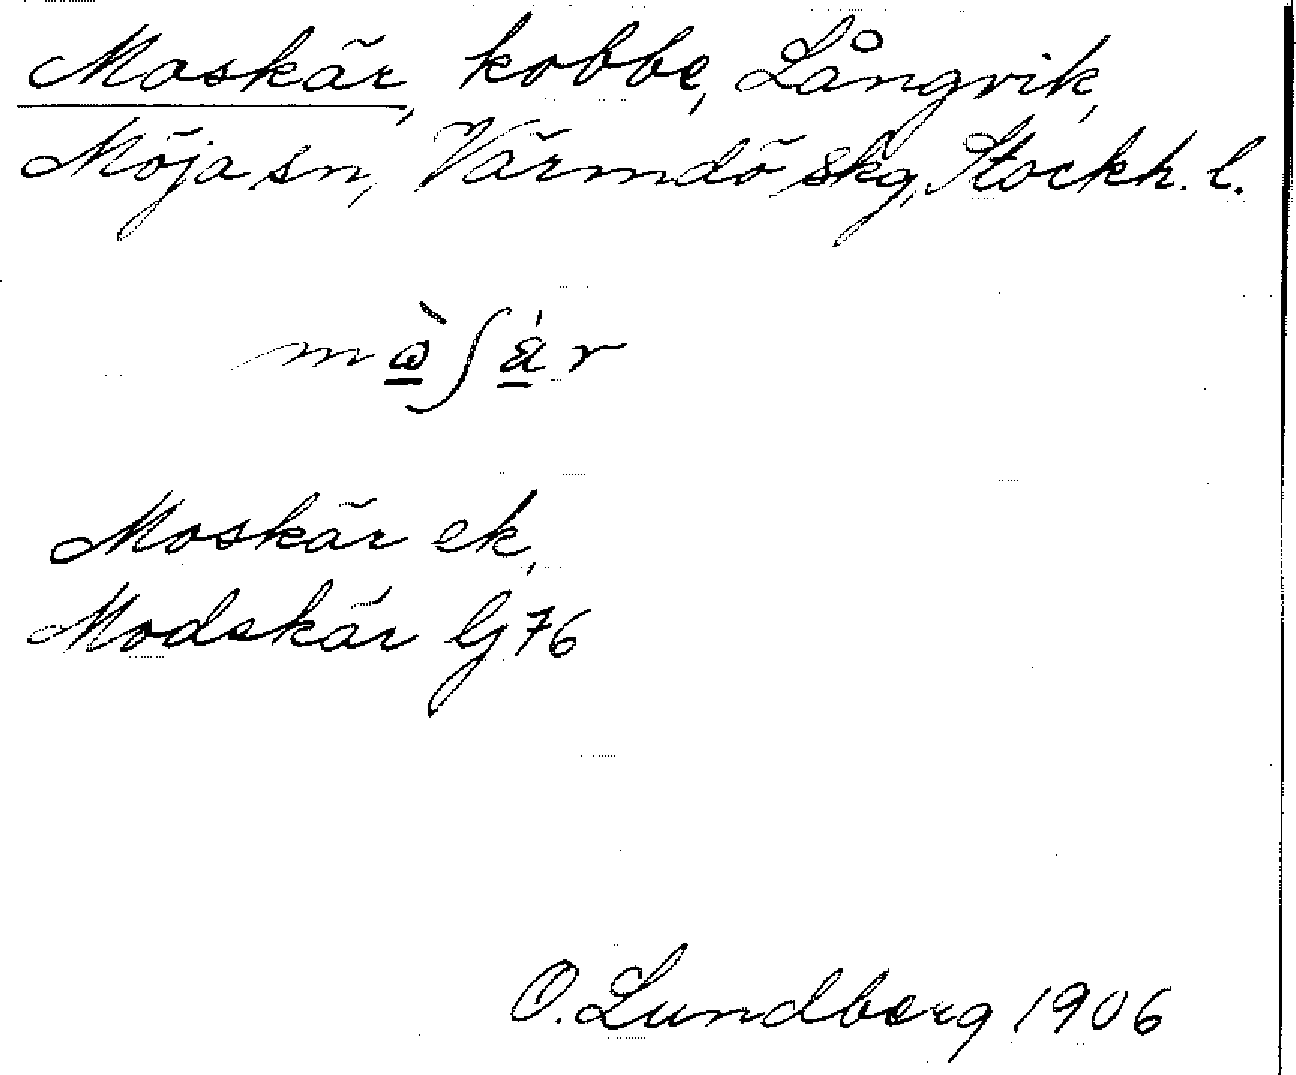 Moskär, kobbe, Långvik,
Möja sn, Värmdö skg, Stockh. l.
Moskär ek,
Modskär G 76
O. Lundberg 1906